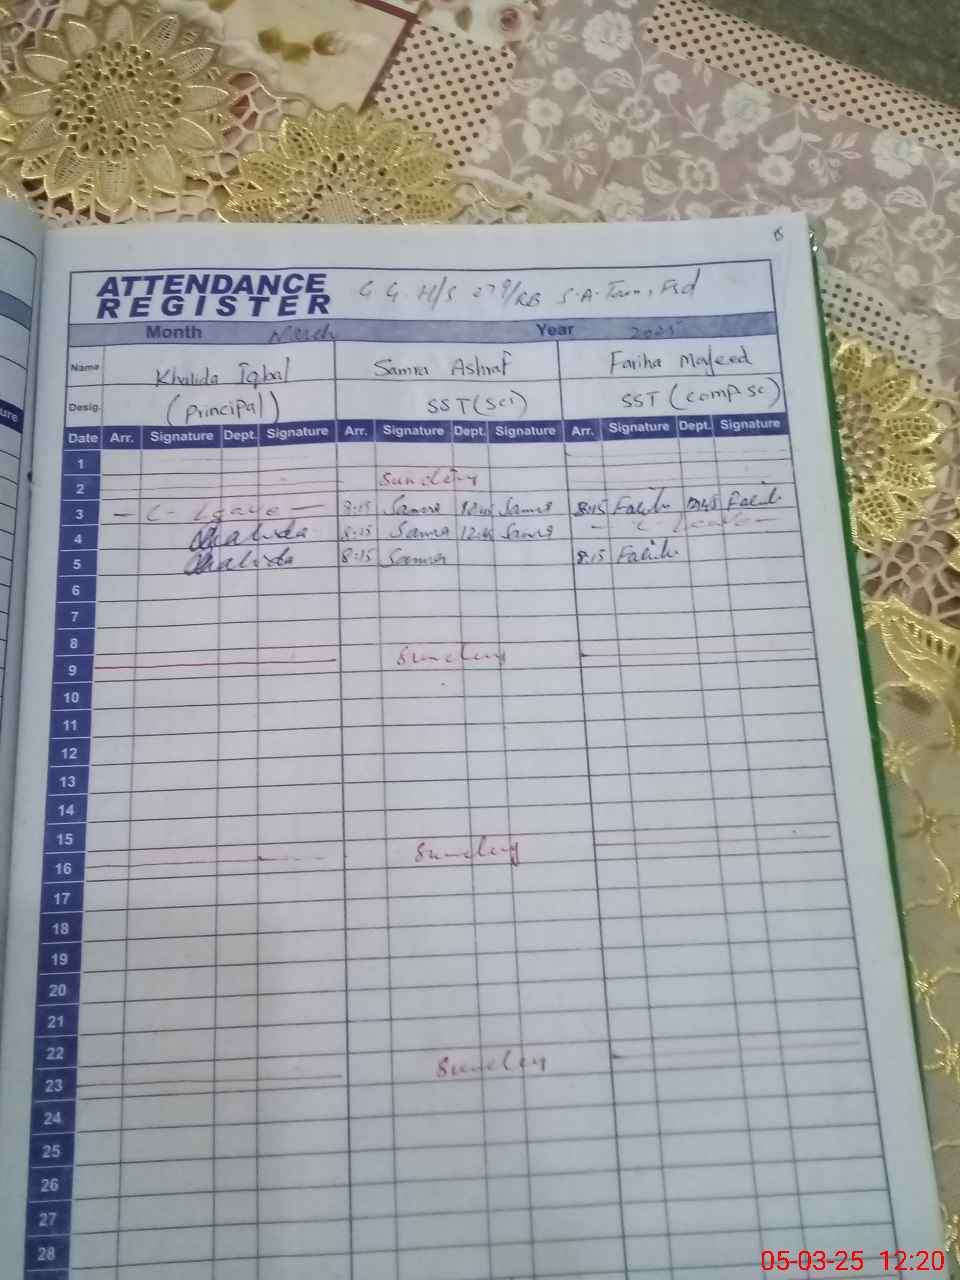 6
ATTENDANCE REGISTER G.G. H/S 279/RB S.A. Town, Fsd
Month March Year 2025
Name Khalida Iqbal Samra Ashraf Fariha Majeed
Desig. (Principal) SST (Sci) SST (Comp.Sc)
ure
Date Arr. Signature Dept. Signature Arr. Signature Dept. Signature Arr. Signature Dept. Signature
1
2 Sunday
3 - C- Leave - 8:15 Samra 12:45 Samra 8:15 12:45
4 Khalida 8:15 Samra 12:45 Samra - C- Leave -
5 Khalida 8:15 Samra 8:15
6
7
8
9 Sunday
10
11
12
13
14
15
16 Sunday
17
18
19
20
21
22
23 Sunday
24
25
26
27
28
05-03-25 12:20